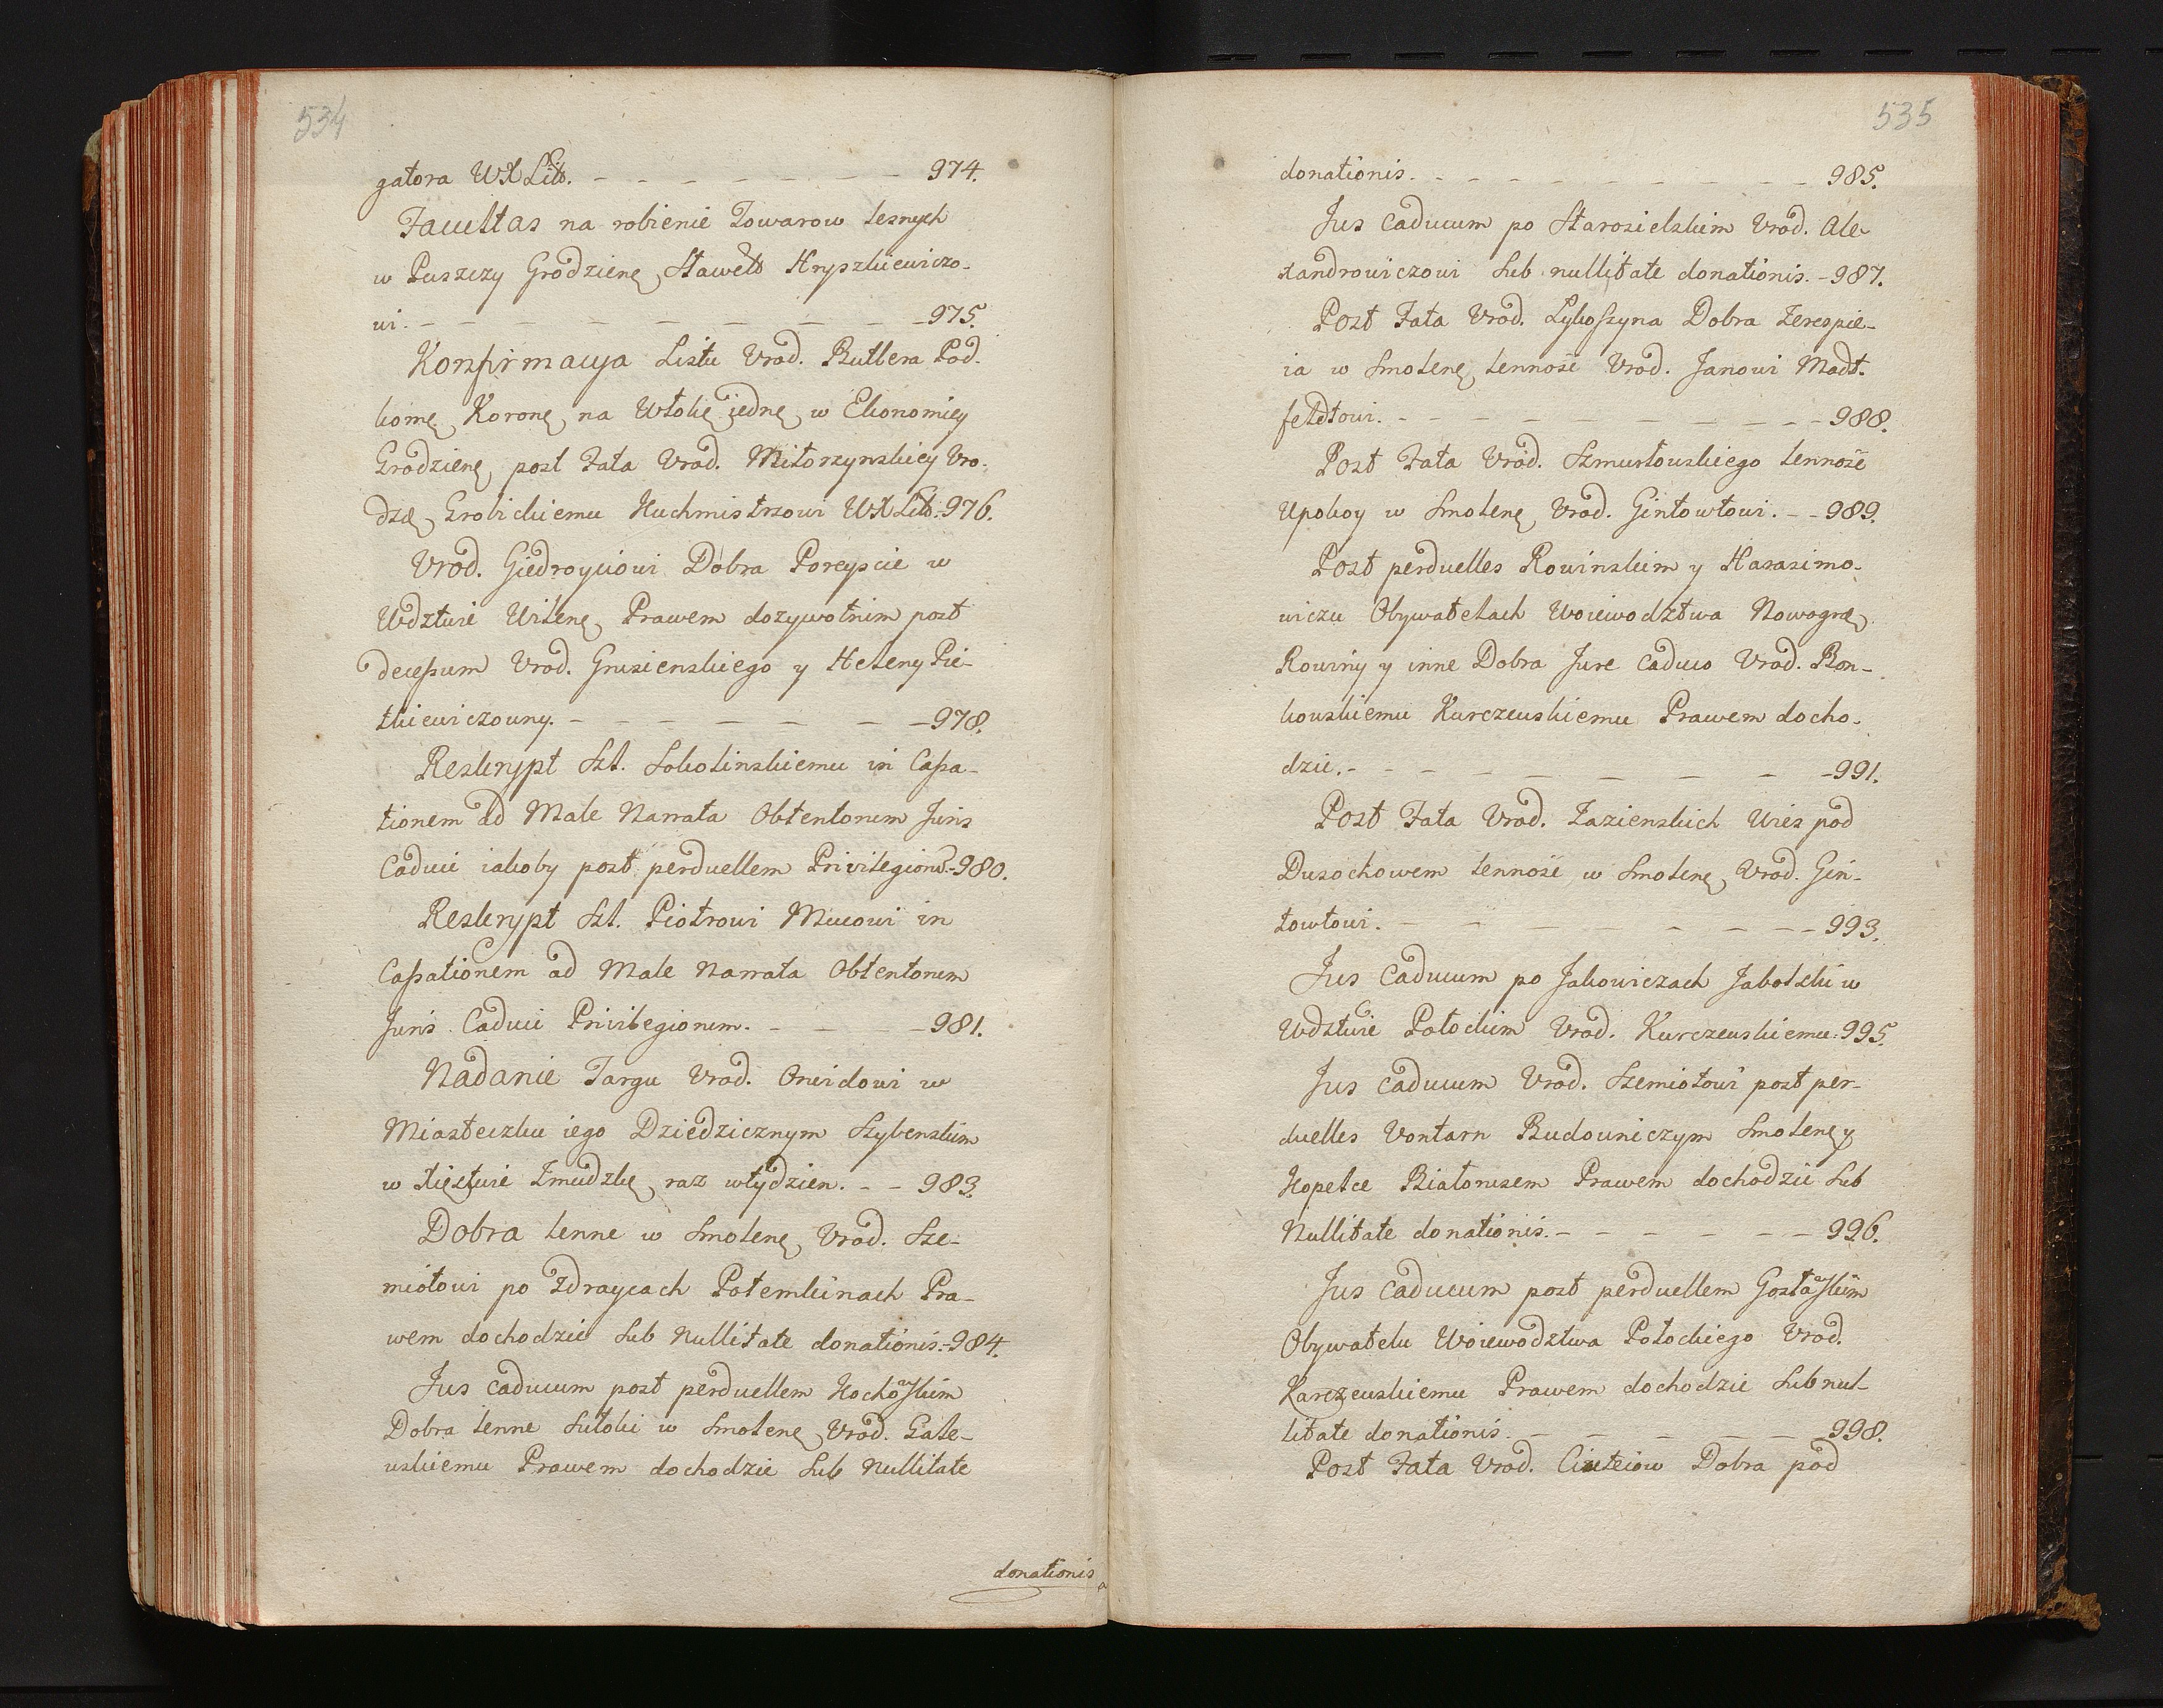 534
gatora WXLitt. - - - - - - - 974.
Facultas na robienie Towarow lesnych
w Puszczy Grodzienę Sławett Hryszkiewiczo-
wi. - - - - - - - - 975.
Konfirmacya Listu Vrod. Butlera Pod-
komę Koronę na Włokę iednę w Ekonomiey
Grodzienę post Fata Vrod. Mitorzynskiey Vro-
dzę Grobickiemu Kuchmistrzowi WXLitt. 976.
Vrod. Giedroyciowi Dobra Porcyscie w
Wdztwie Wilenę Prawem dozywotnim post
decessum Vrod. Grusienskiego y Heleny Pie-
tkiewiczowny. - - - - - - 978.
Reskrypt Szl. Sokolinskiemu in Cassa-
tionem ad Male Narrata Obtentorum Juris
Caduci iakoby post perduellem Privilegiorũ 980.
Reskrypt Szl. Piotrowi Mucowi in
Cassationem ad Male narrata Obtentorum
Juris Caduci Privilegiorum. - - - 981.
Nadanie Targu Vrod. Oneidowi w
Miasteczku iego Dziedzicznym Szybenskim
w Xięstwie Zmudzkę raz wtydzien. - - 983.
Dobra lenne w Smolenę Vrod. Sze-
miotowi po Zdraycach Potemkinach Pra-
wem dochodzic Sub Nullitate donationis. - 984.
Jus caducum post perduellem Kochowskim
Dobra lenne Sutoki w Smolenę Vrod. Gale-
wskiemu Prawem dochodzic Sub Nullitate
donationis
535
donationis. - - - - - - - - - 985.
Jus Caducum po Starosielskim Vrod. Ale-
xandrowiczowi Sub nullitate donationis. - 987.
Post Fata Vrod. Lykoszyna Dobra Terespie-
ia w Smolenę lennośc Vrod. Janowi Madt-
feldtowi. - - - - - - - - - 988.
Post Fata Vrod. Szmurłowskiego lennośc
Upokoy w Smolenę Vrod. Gintowtowi. - - 989.
Post perduelles Rowinskim y Harasimo-
wiczu Obywatelach Woiewodztwa Nowogrę
Rowiny y inne Dobra Jure Caduco Vrod. Bon-
kowskiemu Kurczewskiemu Prawem docho-
dzic. - - - - - - - - 991.
Post Fata Vrod. Zazienskich Wies pod
Dusochowem lennośc w Smolenę Vrod. Gin-
towtowi. - - - - - - - - 993.
Jus Caducum po Jakowiczach Jabotzki w
Wdztwie Połockim Vrod. Kurczewskiemu. 995.
Jus caducum Vrod. Szemiotowi post per-
duelles Vontarn Budowniczym Smolenę y
Kopetce Białorusem Prawem dochodzic Sub
Nullitate donationis. - - - - - - 996.
Jus caducum post perduellem Gostawskim
Obywatelu Woiewodztwa Połockiego Vrod.
Karczewskiemu Prawem dochodzic Sub nul-
litate donationis. - - - - - - 998.
Post Fata Vrod. Ciuteiow Dobra pod